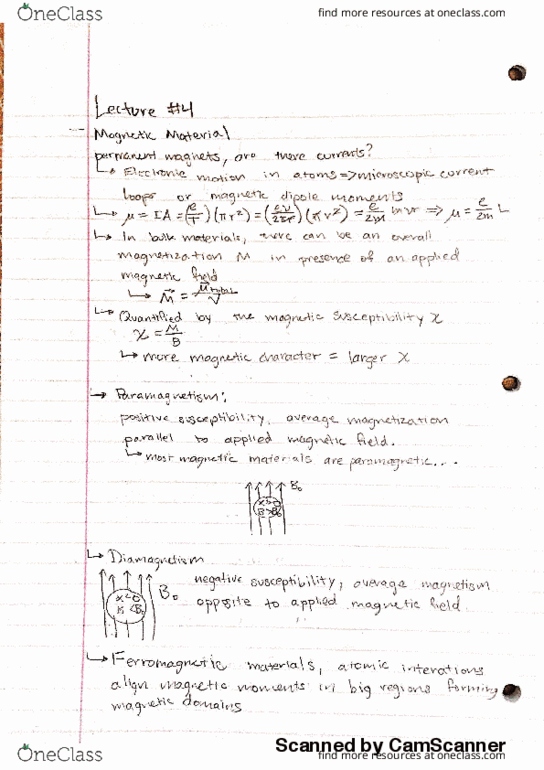 OneClass
find more resources at oneclass.com
Lecture #4
Magnetic Material
permanent magnets, are there currents?
↳ Electronic motion in atoms => microscopic current
loops or magnetic dipole moments
↳ μ = IA = (e/T)(πr²) = (ev/2πr)(πr²) = e/2m mvr => μ = e/2m L
↳ In bulk materials, there can be an overall
magnetization M in presence of an applied
magnetic field
↳ M = μtotal/V
↳ Quantified by the magnetic susceptibility χ
χ = M/B
↳ more magnetic character = larger χ
→ Paramagnetism:
positive susceptibility, average magnetization
parallel to applied magnetic field.
↳ most magnetic materials are paramagnetic...
B₀
↳ Diamagnetism
negative susceptibility, average magnetism
B₀
opposite to applied magnetic field
χ<0
↳ Ferromagnetic materials, atomic interations
align magnetic moments in big regions forming
magnetic domains
Scanned by CamScanner
OneClass
find more resources at oneclass.com